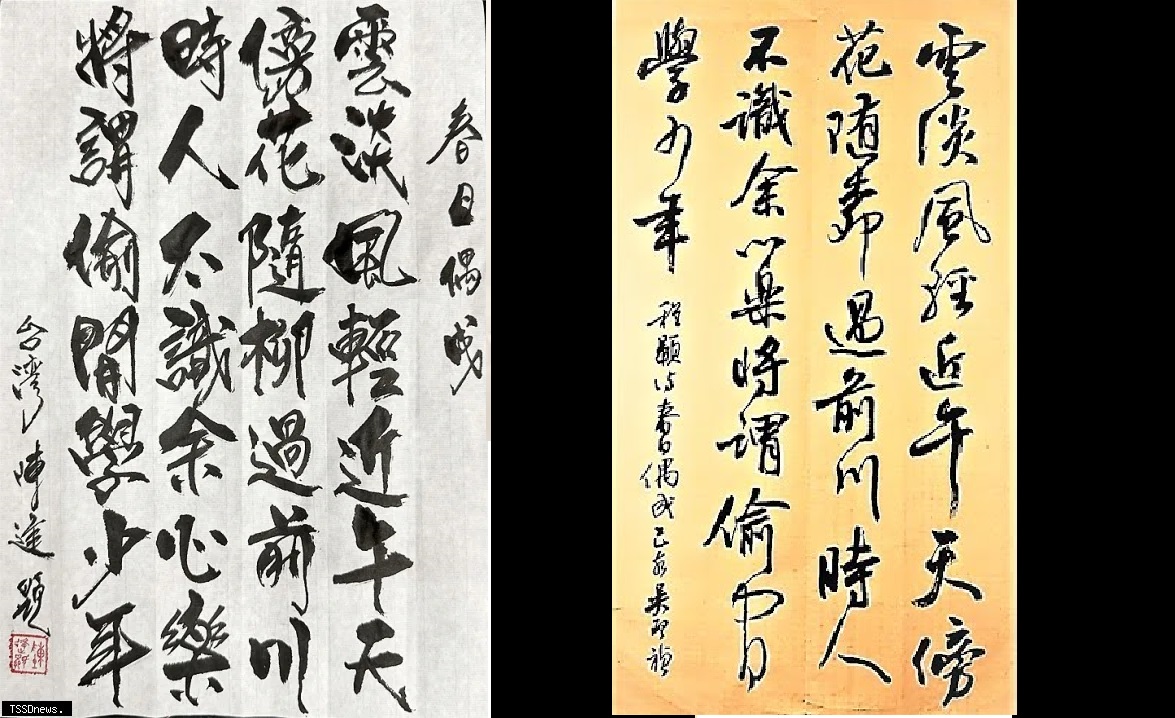 春日偶成
雲淡風輕近午天
傍花隨柳過前川
時人不識余心樂
將謂偷閒學少年
台灣陳題
雲淡風輕近午天傍
花随柳過前川時人
不識余心樂將謂偷閒
學少年
程顥詩春日偶成己亥吳
TSSDnews.